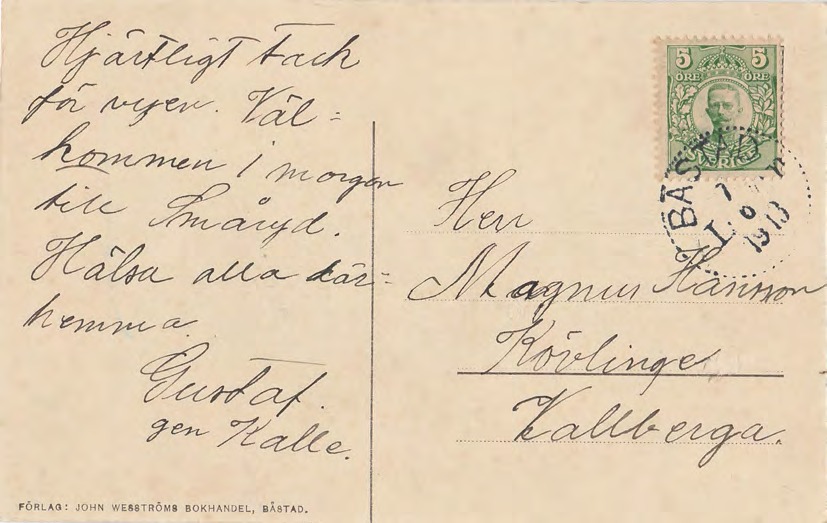 Hjärtligt tack
för vyen. Väl-
kommen i morgon
till Småryd.
Hälsa alla där-
hemma
Gustaf.
gen Kalle.
FÖRLAG: JOHN WESSTRÖMS BOKHANDEL, BÅSTAD.
5 5
ÖRE ÖRE
SVERIGE
BÅSTAD
1913
Herr
Magnus Hansson
Kövlinge
Vallberga.